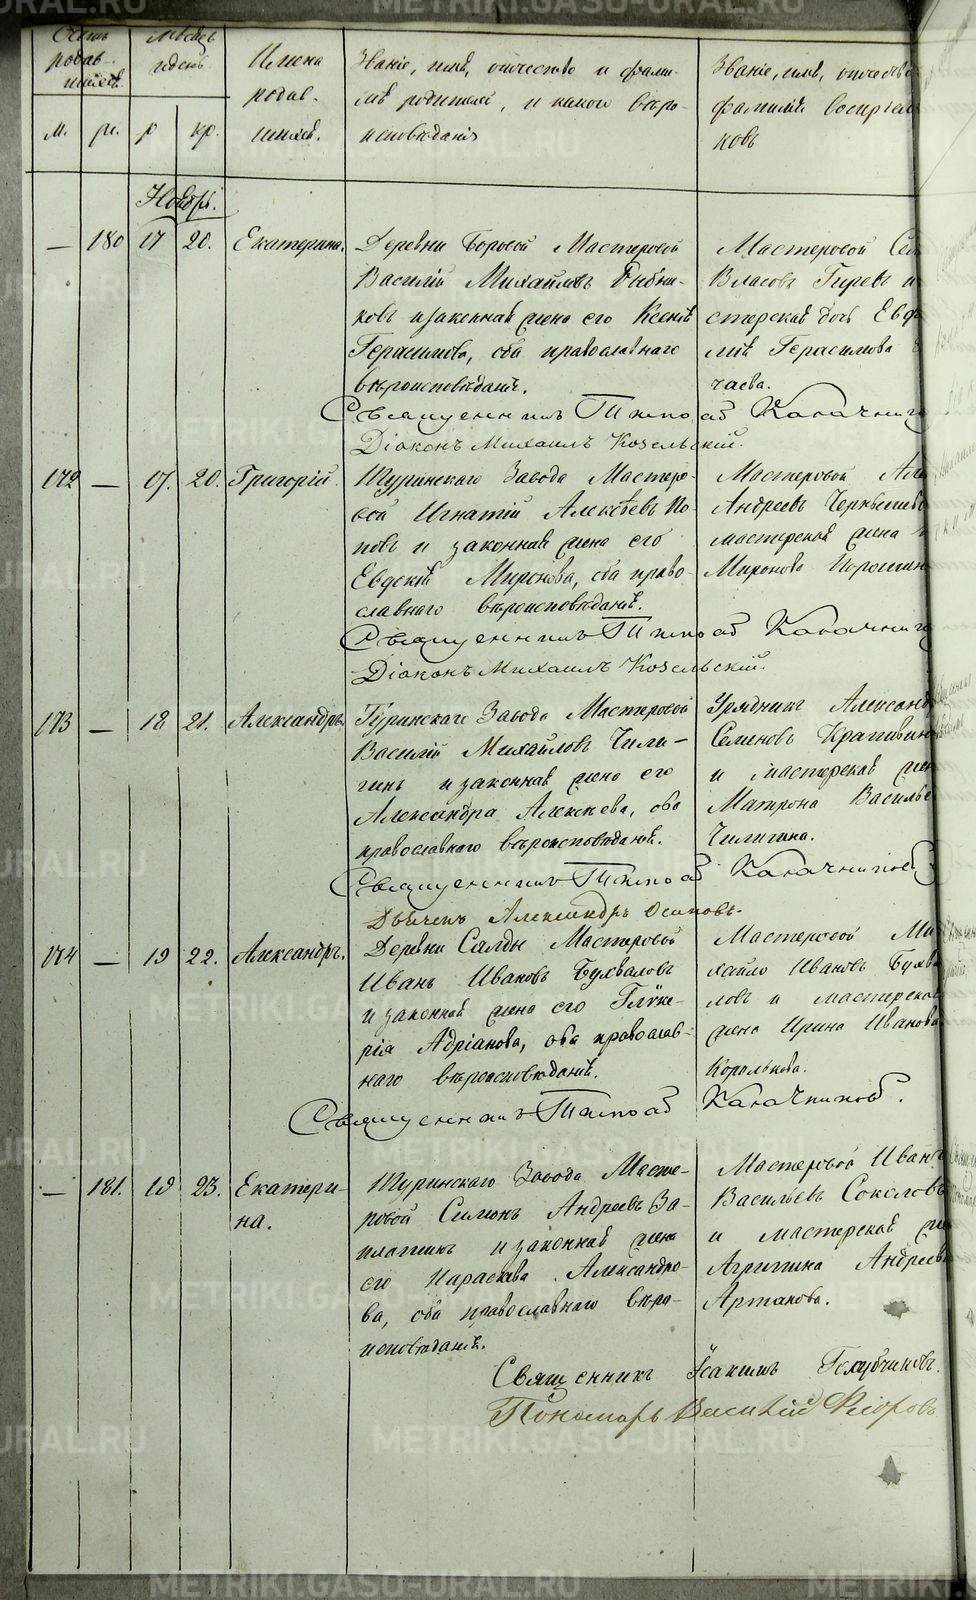 Счетъ родив-шихся. Мѣсяцъ и день. Имена родив-шихся. Званіе, имя, отчество и фами-лія родителей, и какого вѣро-исповѣданія Званіе, имя, отчество фамилія воспріем-ковъ
м. ж. р кр.
Ноябрь.
— 180 17 20. Екатерина.
Деревни Боровой Мастеровой
Василій Михайловъ
ковъ и законная жена его Ксенія
Герасимова, оба православнаго
вѣроисповѣданія.
Мастеровой Сем
Власовъ Гиревъ и
стерская дочь Евф
мія Герасимова
чаева.
Священникъ Тимоѳей Калачнико
Діаконъ Михаилъ Козельскій.
172 — 17. 20. Григорій.
Туринскаго Завода Мастеро-
вой Игнатій Алексѣевъ По-
повъ и законная жена его
Евдокія Миронова, оба право-
славнаго вѣроисповѣданія.
Мастеровой Але
Андреевъ
мастерская жена
Миронова Порошин
Священникъ Тимоѳей Калачнико
Діаконъ Михаилъ Козельскій.
173 — 18 21. Александръ.
Туринскаго Завода Мастеровой
Василій Михайловъ Чили-
гинъ и законная жена его
Александра Алексѣева, оба
православнаго вѣроисповѣданія.
Урядникъ Александ
Семеновъ Крапивин
и мастерская жен
Матрона Василье
Чилигина.
Священникъ Тимоѳей Калачниковъ
Дьячекъ Александръ Осиповъ.
174 — 19 22. Александръ.
Деревни Салды Мастеровой
Иванъ Ивановъ Бухваловъ
и законная жена его Глике-
рія Адріанова, оба православ-
наго вѣроисповѣданія.
Мастеровой Ми
хайло Ивановъ Бухва
ловъ и мастерская
жена Ирина Иванова
Королькова.
Священникъ Тимоѳей Калачниковъ.
— 181. 19 23. Екатери-
на.
Туринскаго Завода Масте-
ровой Симонъ Андреевъ За-
платинъ и законная жена
его Параскева Александро-
ва, оба православнаго вѣро-
исповѣданія.
Мастеровой Иванъ
Васильевъ Соколовъ
и мастерская же
Агрипина Андреева
Артакова.
Священникъ Іоакимъ Голубчиковъ.
Пономарь Василій Ѳлоровъ
METRIKI.GASO-URAL.RU